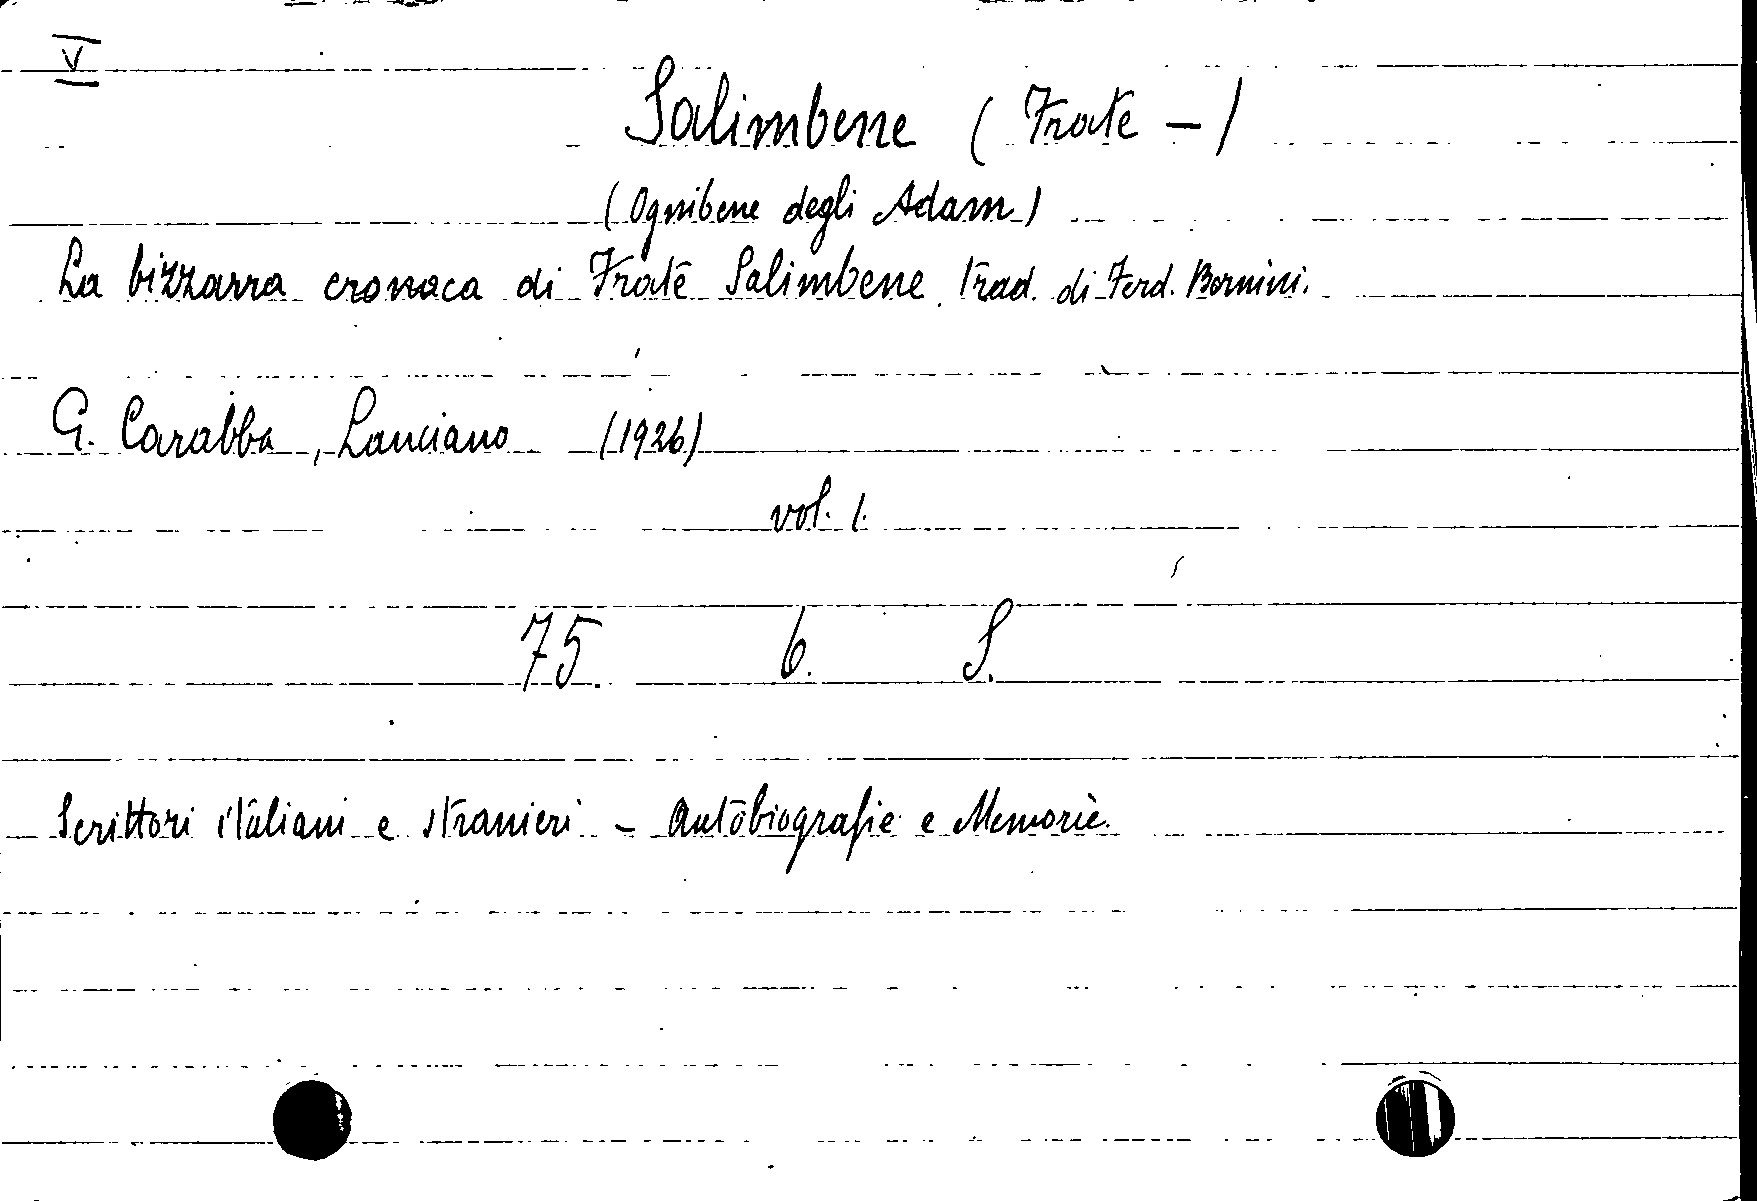 V
Salimbene (Frate -)
(Ognibene degli Adam)
La bizzarra cronaca di Frate Salimbene. Trad. di Ferd. Bernini.
G. Carabba, Lanciano (1926)
vol. 1.
75. 6. S.
Scrittori italiani e stranieri - Autobiografie e Memorie.